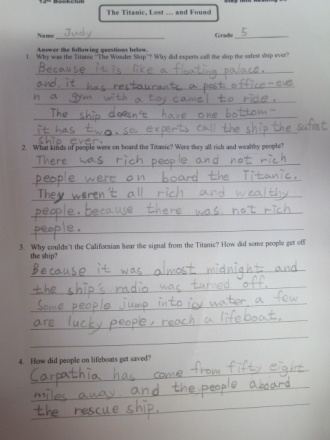 13th Bookclub Step Into Reading
The Titanic, Lost ... and Found
Name Judy Grade 5
Answer the following questions below.
1. Why was the Titanic "The Wonder Ship"? Why did experts call the ship the safest ship ever?
Because it is like a floating palace.
and it has restaurants a post office-eve
n a gym with a toy camel to ride.
The ship doesn't have one bottom-
it has two. so experts call the ship the safest
ship ever.
2. What kinds of people were on board the Titanic? Were they all rich and wealthy people?
There was rich people and not rich
people were on board the Titanic.
They weren't all rich and wealthy
people. because there was not rich
people.
3. Why couldn't the Californian hear the signal from the Titanic? How did some people get off
the ship?
Because it was almost midnight and
the ship's radio was turned off.
Some people jump into icy water a few
are lucky people, reach a lifeboat.
4. How did people on lifeboats get saved?
Carpathia has come from fifty eight
miles away and the people aboard
the rescue ship.